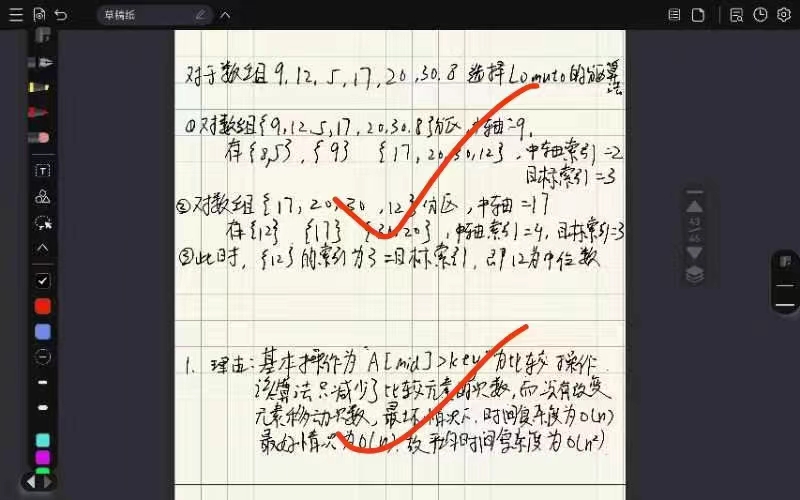 草稿纸
对于数组9,12,5,17,20,30,8 选择Lomuto的分区算法
①对数组{9,12,5,17,20,30,8}分区,中轴=9,
存{8,5},{9} {17,20,30,12},中轴索引=2
目标索引=3
②对数组{17,20,30,12}分区,中轴=17
存{12} {17} {30,20},中轴索引=4,目标索引=3
③此时,{12}的索引为3=目标索引,即12为中位数
1. 理由:基本操作为"A[mid]>key"为比较操作
该算法只减少了比较元素的次数,而没有改变
元素移动次数,最坏情况下,时间复杂度为O(n)
最好情况为O(n),故平均时间复杂度为O(n²)
43